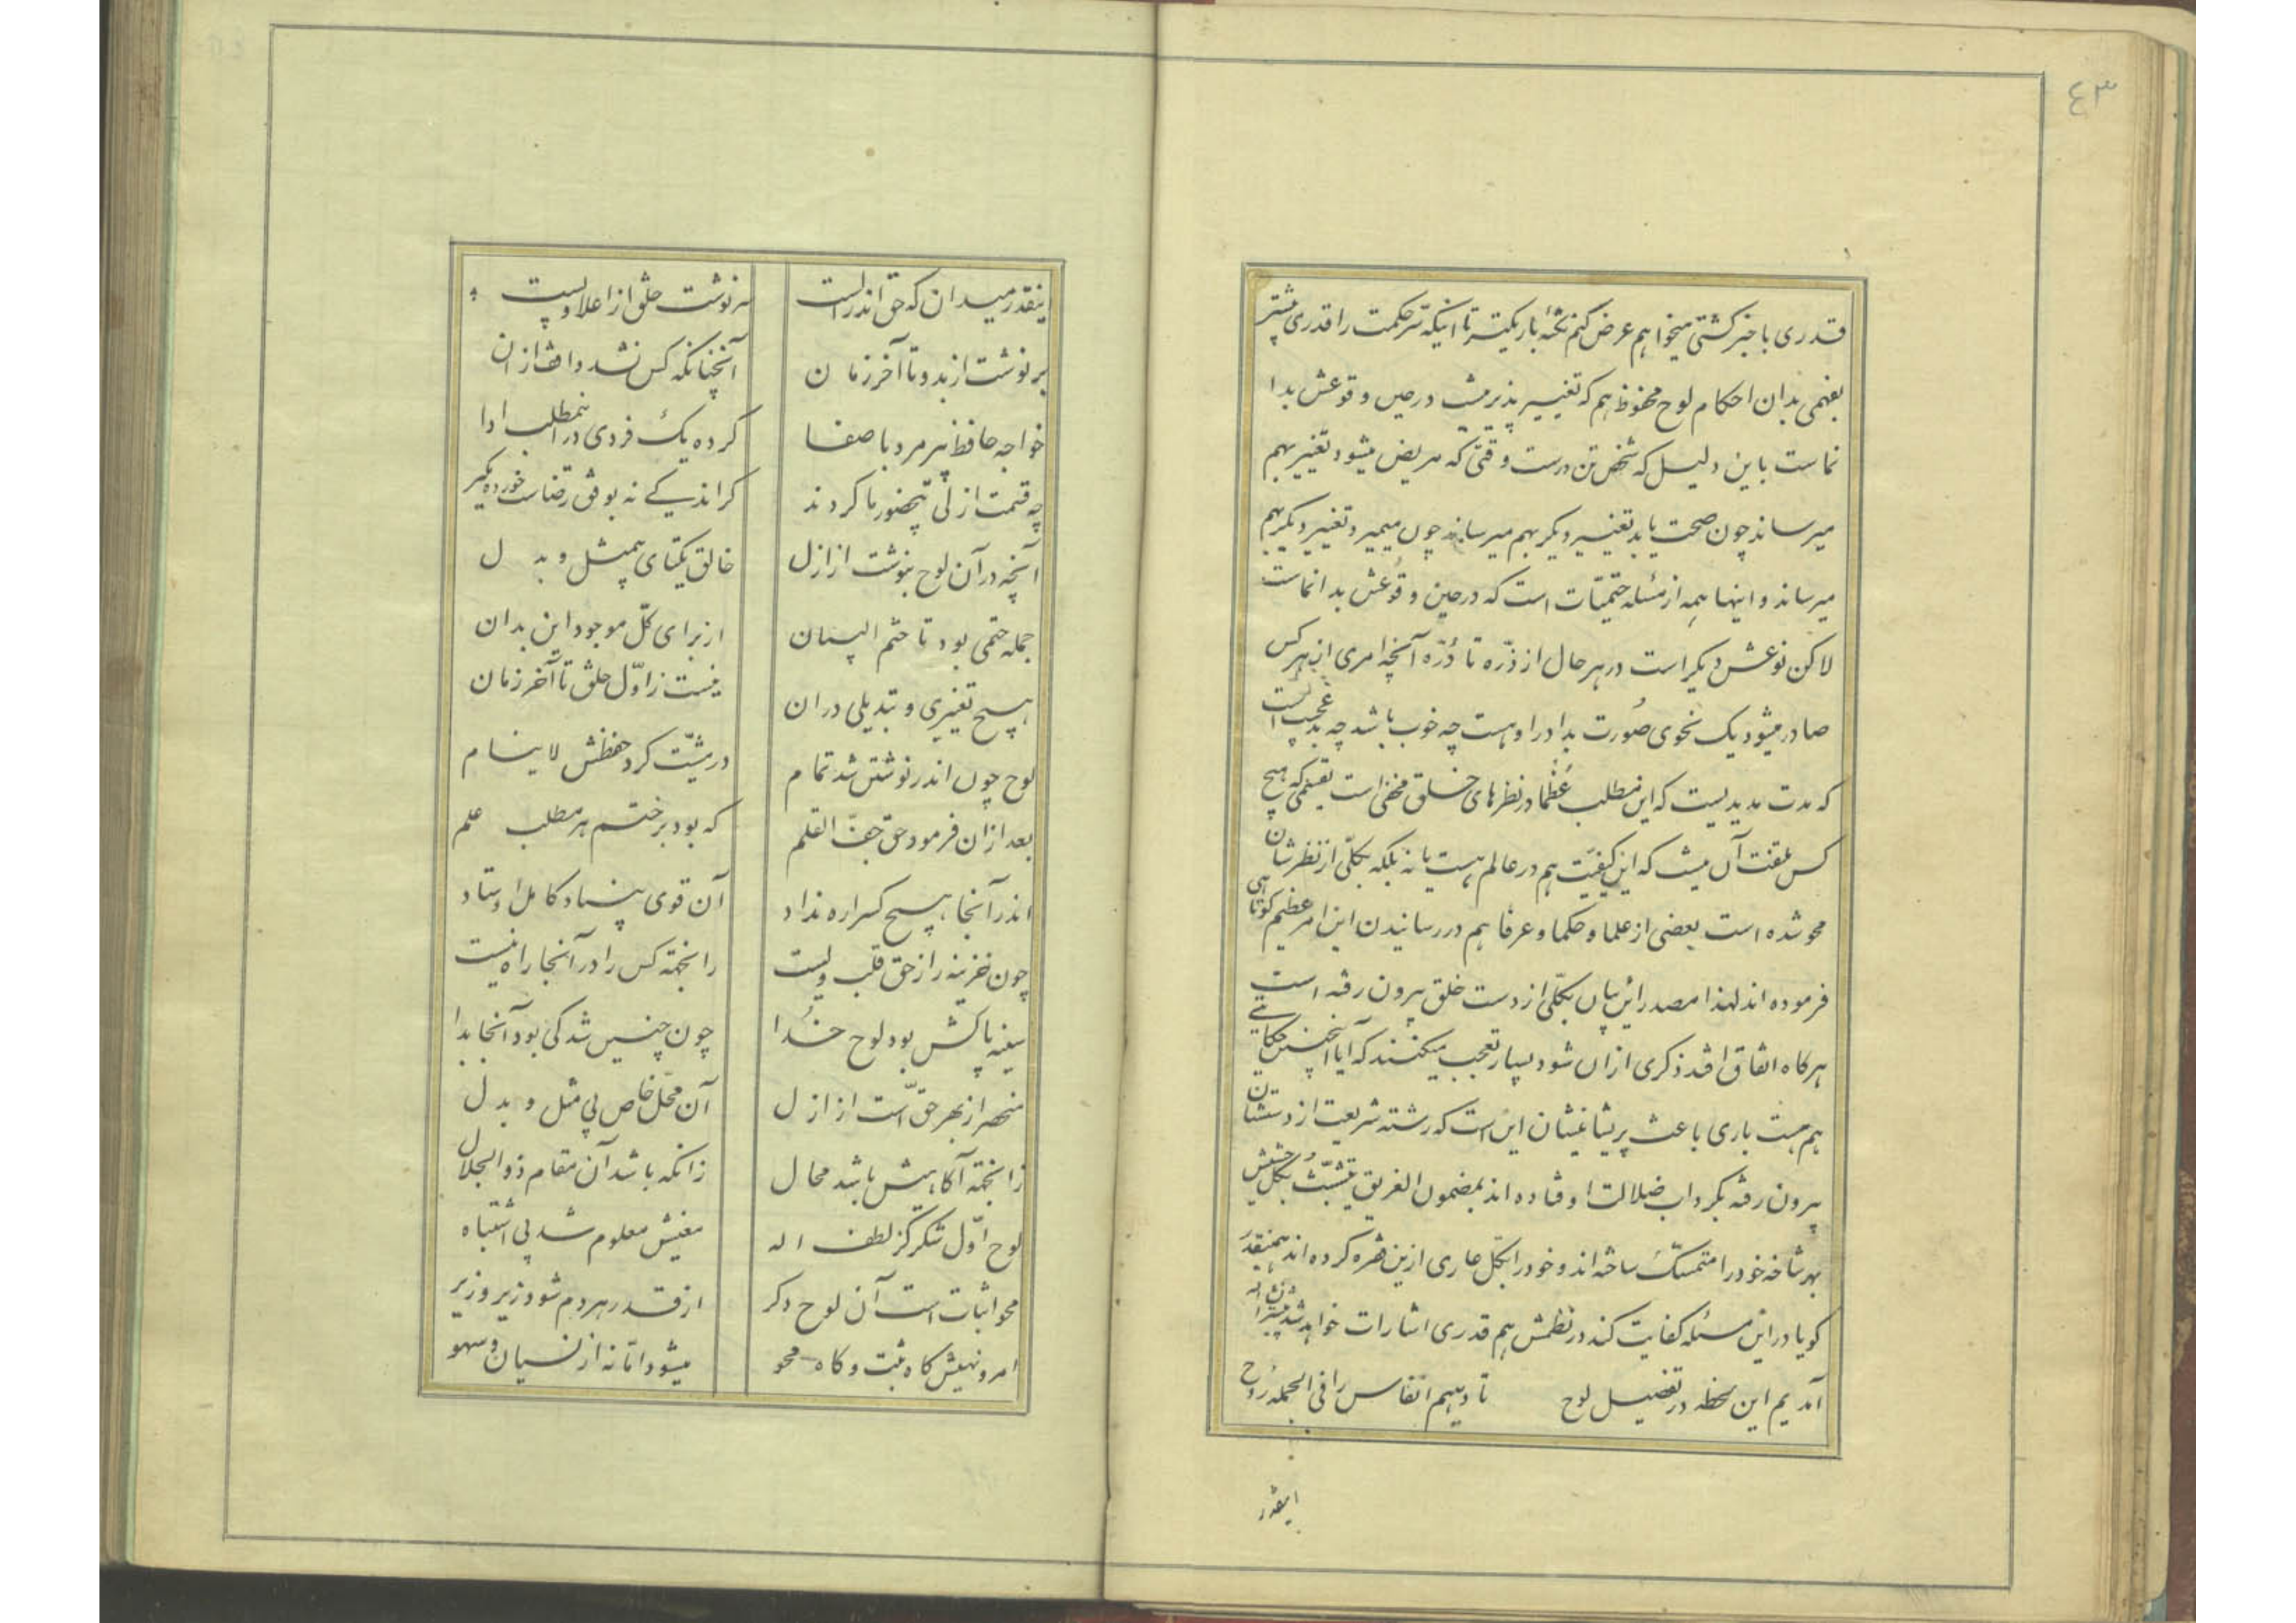 ٤٣
قدری با خبر کشتی میخواهم عرض کنم نکتهٔ باریکتر تا اینکه سّر حکمت را قدری بیشتر
بفهمی بدان احکام لوح محفوظ هم که تغییر پذیر نیست در حین وقوعش بدا
نماست باین دلیل که شخص تن درست وقتی که مریض میشود تغییر بهم
میرساند چون صحت یابد تغییر دیگر بهم میرساند چون میمیرد تغییر دیگر بهم
میرساند و اینها همه از مسئله حتمیّات است که در حین وقوعش بدا نماست
لاکن نوعش دیگر است در هر حال از ذرّه تا دُرّه آنچه امری از هر کس
صادر میشود یک نحوی صُورت بدا در او هست چه خوب باشد چه بد عجب است
که مدت مدیدیست که این مطلب عُظما در نظرهای خلق مخفی است بقسمی که هیچ
کس ملتفت آن نیست که این کیفیّت هم در عالم هست یا نه بلکه بکلّی از نظرشان
محو شده است بعضی از علما و حکما و عرفا هم در رسانیدن این امر عظیم کوتاهی
فرموده اند لهذا مصدر این بیان بکلّی از دست خلق بیرون رفته است
هر کاه اتفاق افتد ذکری از ان شود بسیار تعجب میکنند که آیا اینچنین حکایتی
هم هست باری باعث پریشانیشان این است که رشته شریعت از دستشان
بیرون رفته بکرداب ضلالت اوفتاده اند بمضمون الغریق یتشبّثُ بکل حشیش
بهر شاخه خود را متمسّک ساخته اند و خود را بکلّ عاری ازین ثمره کرده اند همینقدَر
کویا در این مسئله کفایت کند در نظمش هم قدری اشارات خواهد شد انشاءاله
آمدیم این لحظه در تفضیل لوح تا دهیم انفاس را فی الجمله رُوح
اینقدر
اینقدر میدان که حق اندر الست سر نوشت خلق از اعلا و پست
بر نوشت از بدو تا آخر زمان آنچنانکه کس نشد واقف از ان
خواجه حافظ پیر مرد با صفا کرده یک فردی در ینمطلب ادا
چه قسمت ازلی بیحضور ما کردند کر اندکی نه بوفق رضاست خورده مکیر
آنچه در آن لوح بنوشت از ازل خالق یکتای بیمثل و بدل
جمله حتمی بود تا ختم البیان از برای کلّ موجود این بدان
هیچ تغییری و تبدیلی در ان نیست ز اوّل خلق تا آخر زمان
لوح چون اندر نوشتن شد تمام در مشیّت کرد حفظش لاینام
بعد از ان فرمود حق جفّ القلم که بود بر ختم هر مطلب علم
اندر آنجا هیچ کس را ره نداد آن قوی بنیاد کامل اوستاد
چون خزینه راز حق قلب ولیست زانجهته کس را در آنجا راه نیست
سینه پاکش بود لوح خُدا چون چنین شد کی بود آنجا بدا
منحصر از بهر حقّ است از ازل آن محّل خاص بی مثل و بدل
زانجهته آکاهیش باشد محال زانکه باشد آن مقام ذوالجلال
لوح اوّل شکر کز لطف اله معنیش معلوم شد بی اشتباه
محو اثبات است آن لوح دکر از قدر هر دم شود زیر و زبر
امر و نهیش کاه ثبت و کاه محو میشود امّا نه از نسیان و سهو